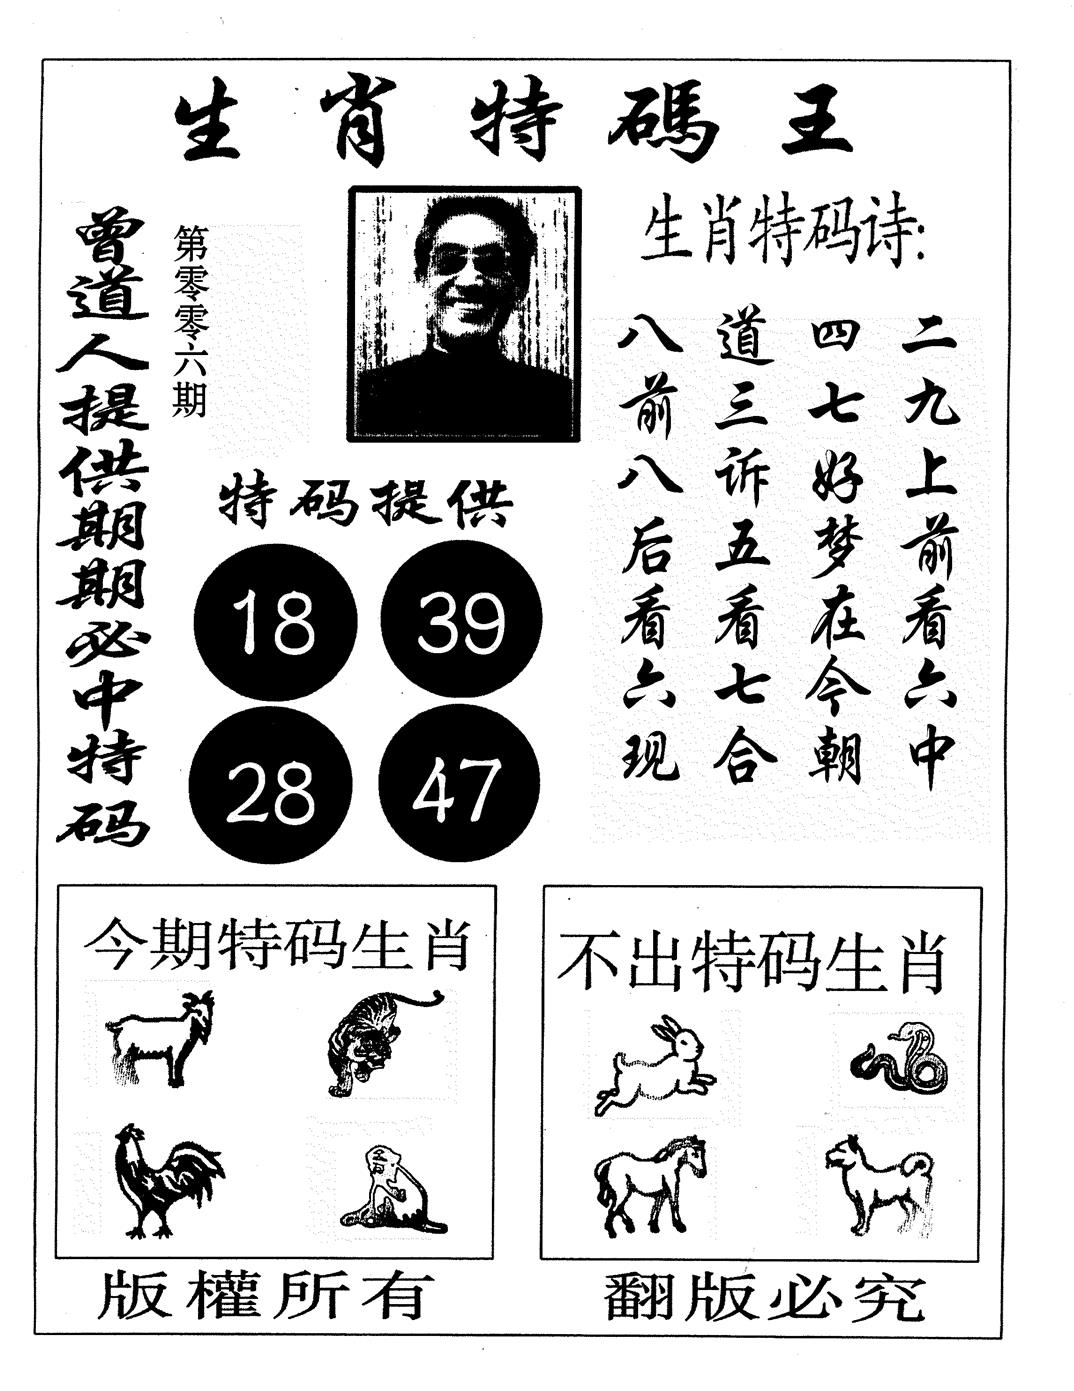 生肖特碼王
曾道人提供期期必中特码
第零零六期
生肖特码诗:
二九上前看六中
四七好梦在今朝
道三诉五看七合
八前八后看六现
特码提供
18
39
28
47
今期特码生肖
不出特码生肖
版權所有
翻版必究